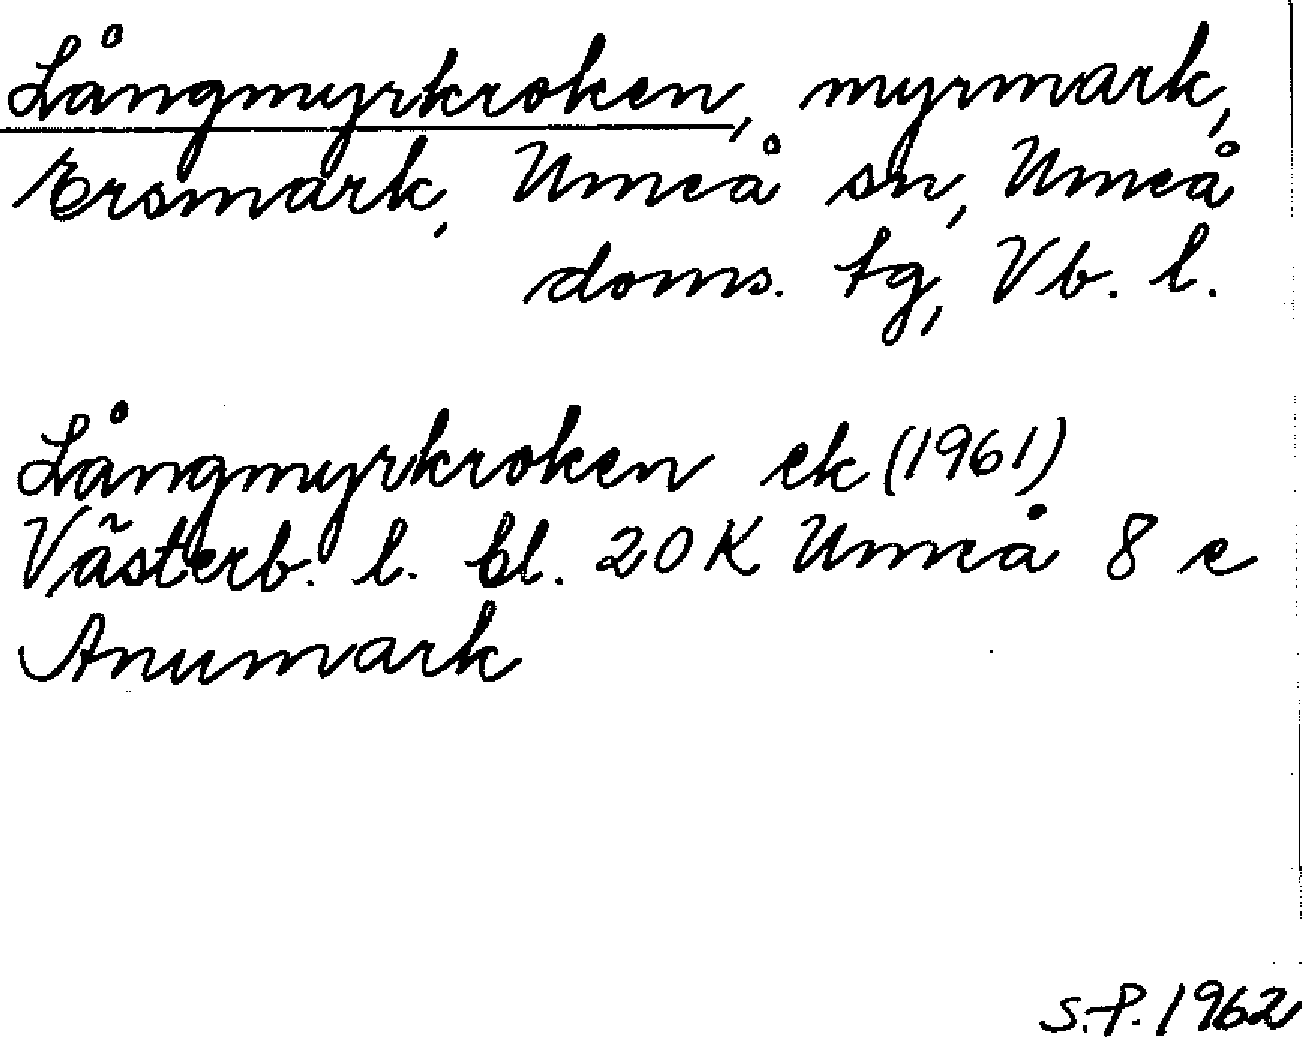 Långmyrkroken, myrmark,
Ersmark, Umeå sn, Umeå
doms. tg, Vb. l.
Långmyrkroken ek (1961)
Västerb. l. bl. 20 K Umeå 8 e
Anumark
S.P. 1962